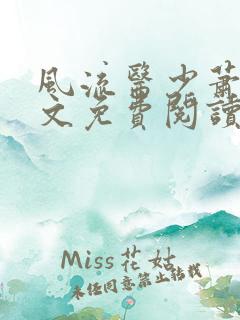 風流醫少蕭
文免費閱讀
Miss花姑
未経同意禁止转载